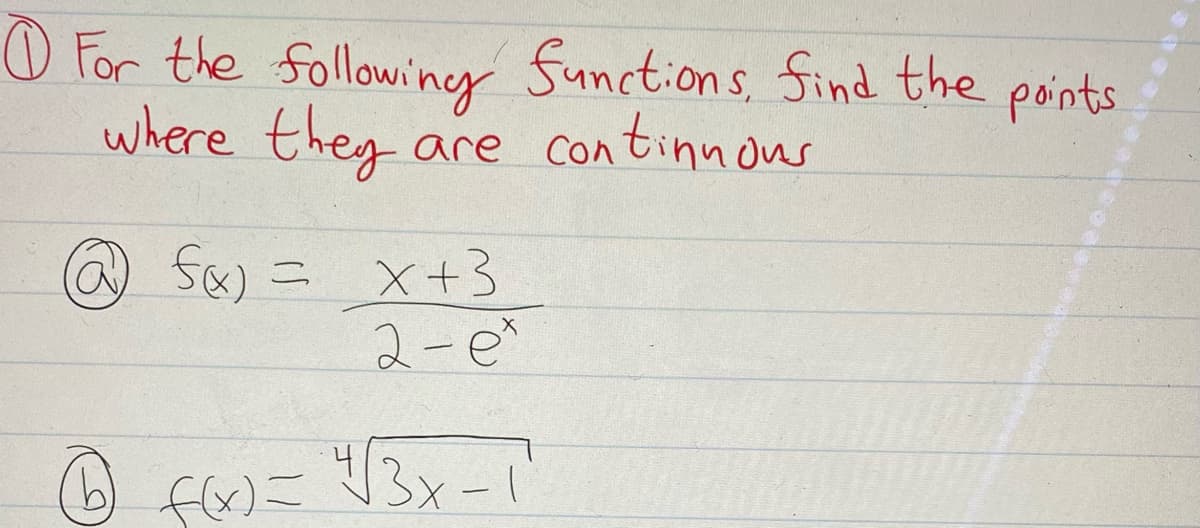 ① For the following functions, find the points
where they are continuous
ⓐ f(x) = x+3
2-eˣ
ⓑ f(x) = ∜3x-1